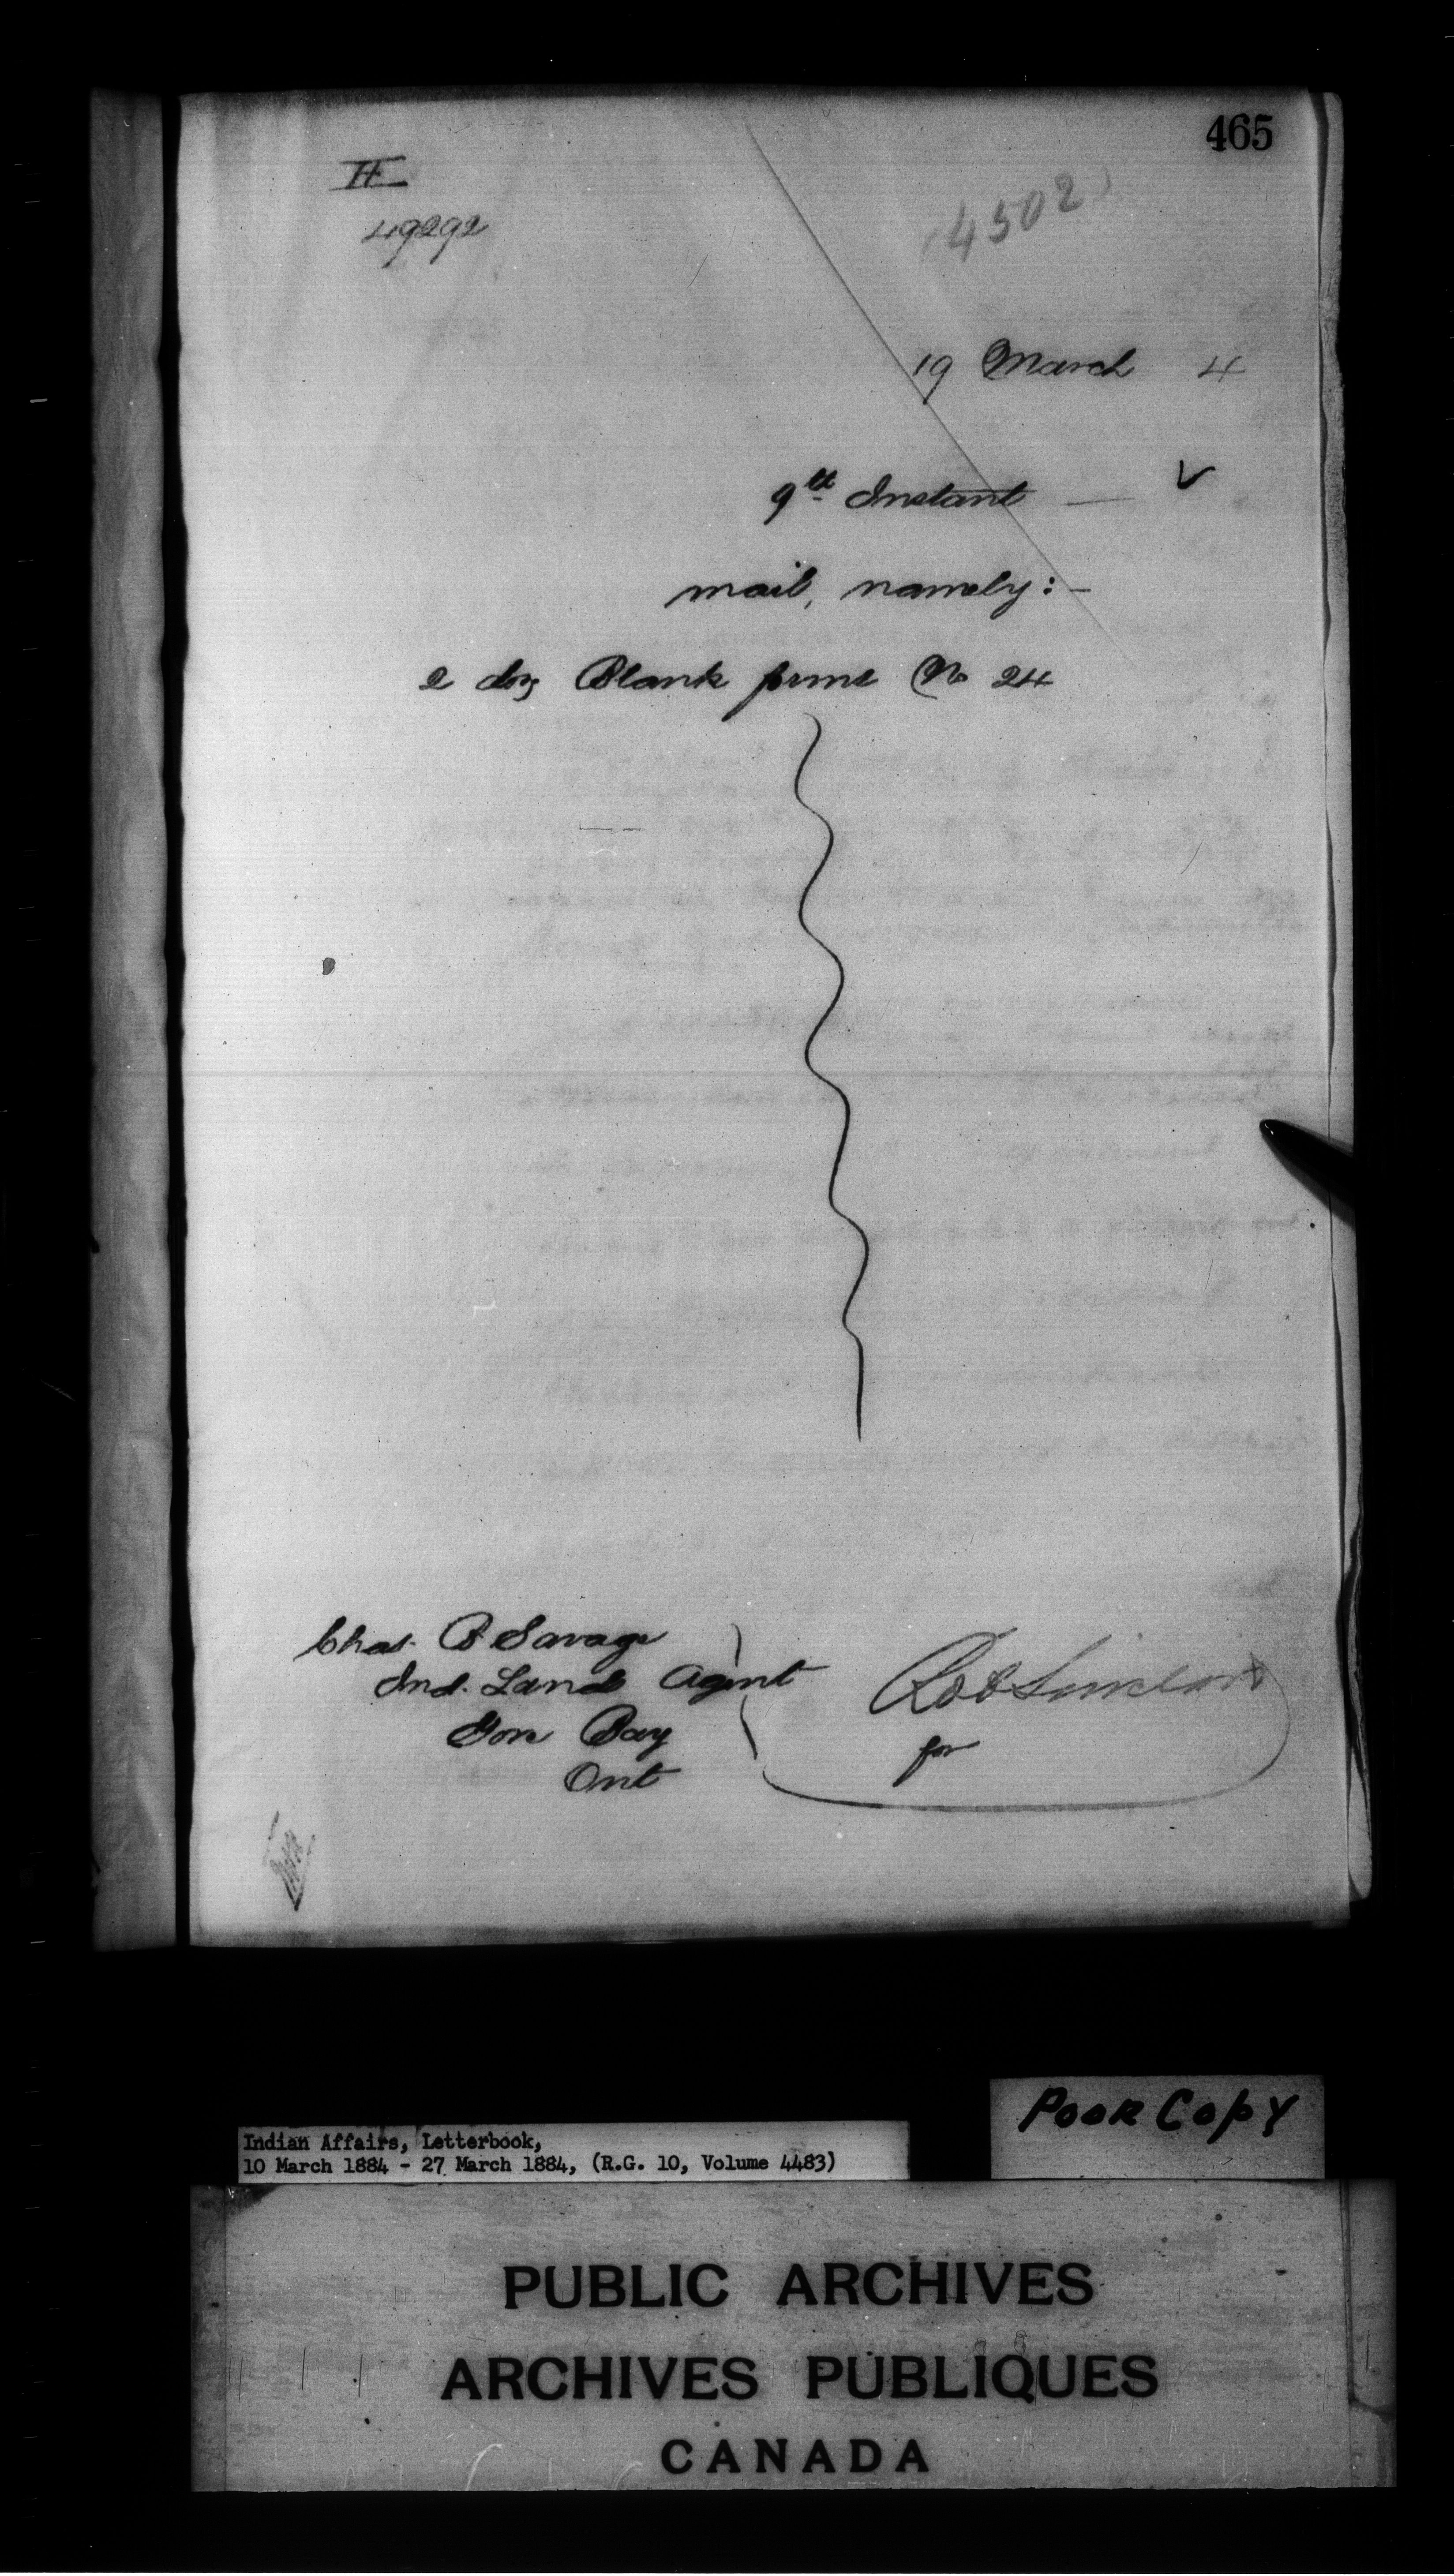 465
H
49292
4502
19 March 4
9th Instant — ✓
mail, namely: -
2 doz Blank forms No 24
Chas. B Savage
Ind. Land Agent
Gore Bay
Ont
Rob Sinclair
for
Poor Copy
Indian Affairs, Letterbook,
10 March 1884 - 27 March 1884, (R.G. 10, Volume 4483)
PUBLIC ARCHIVES
ARCHIVES PUBLIQUES
CANADA